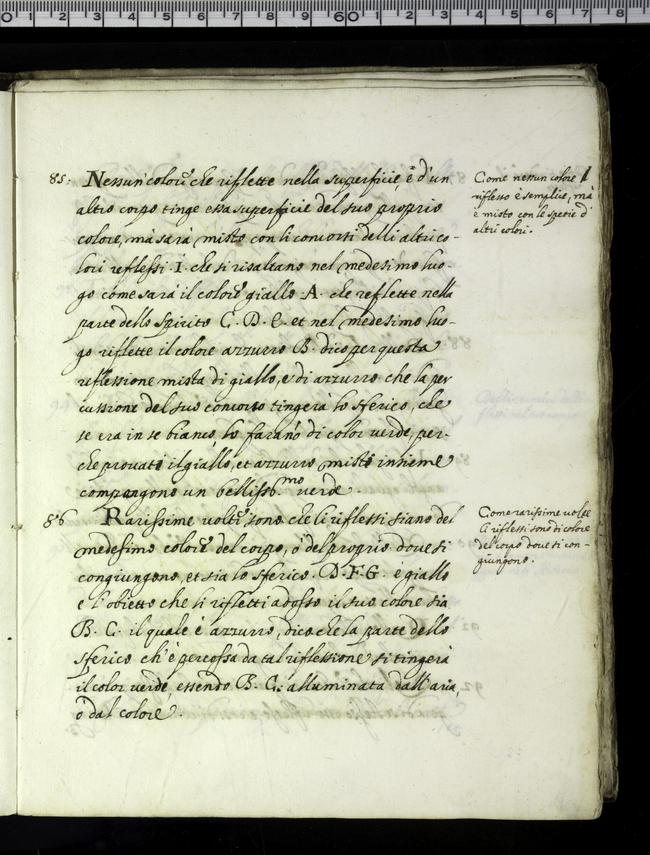 85: Nessun' colore che riflette nella superficie, è d'un
altro corpo tinge essa superficie del suo proprio
colore, mà sarà misto con li concorsi delli altri co-
lori reflessi. I. che si risaltano nel medesimo luo-
go come sarà il colore giallo. A. che reflette nella
parte dello Spirito C. D. E. et nel medesimo luo-
go riflette il colore azzurro B. dico per questa
reflessione mista di giallo, e di azzurro che la per
cussione del suo concorso tingerà lo sferico, che
se era in se bianco lo farano di color verde, per-
che provato il giallo, et azzurro misto insieme
compongono un belliss.mo verde.
Come nessun colore
riflesso è semplice, mà
è misto con le spetie d'
altri colori.
86 Rarissime volte sono che li riflessi siano del
medesimo colore del corpo, ò del proprio dove si
congiungono, et sia lo sferico. D. F. G. è giallo
e l'obietto che li rifletti adosso il suo colore sia
B. C. il quale è azzurro, dico che la parte dello
sferico ch'è percossa da tal riflessione si tingerà
il color verde, essendo B. C. alluminata dall'aria,
ò dal colore.
Come rarissime volte
li riflessi sono di colore
del corpo dove si con-
giungono.